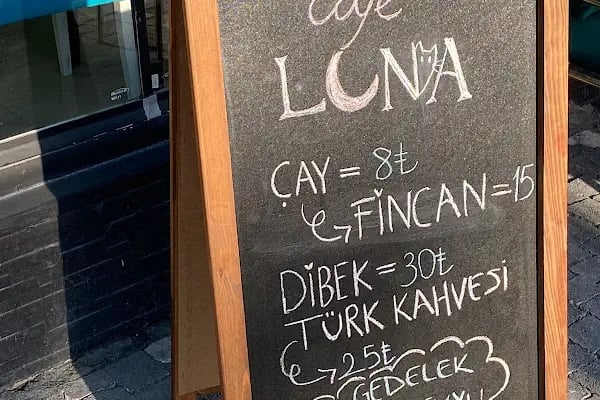 cafe
LUNA
ÇAY = 8₺
↳ FİNCAN = 15
DİBEK = 30₺
TÜRK KAHVESİ
↳ 25₺
GEDELEK